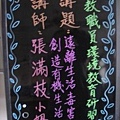 教職員環境教育研習
講題：遠離生活毒害
創造有機生活
講師：張滿枝小姐